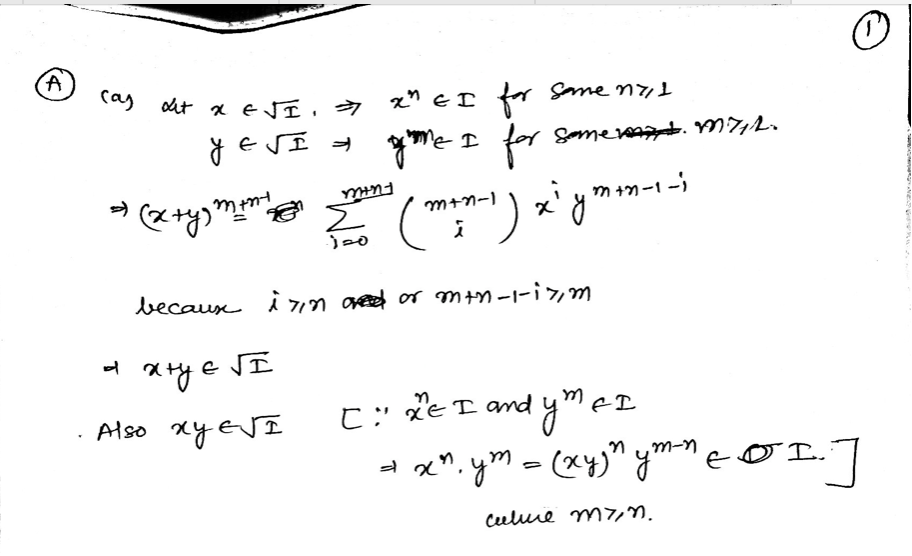 1
A (a) Let x ∈ √I, ⇒ xⁿ ∈ I for some n≥1
y ∈ √I ⇒ yᵐ ∈ I for some m≥1.
⇒ (x+y)^{m+n-1} = ∑_{i=0}^{m+n-1} \binom{m+n-1}{i} x^i y^{m+n-1-i}
because i≥n or m+n-1-i≥m
⇒ x+y ∈ √I
. Also xy ∈ √I [∵ xⁿ ∈ I and yᵐ ∈ I
⇒ xⁿ. yᵐ = (xy)ⁿ y^{m-n} ∈ I.]
where m≥n.